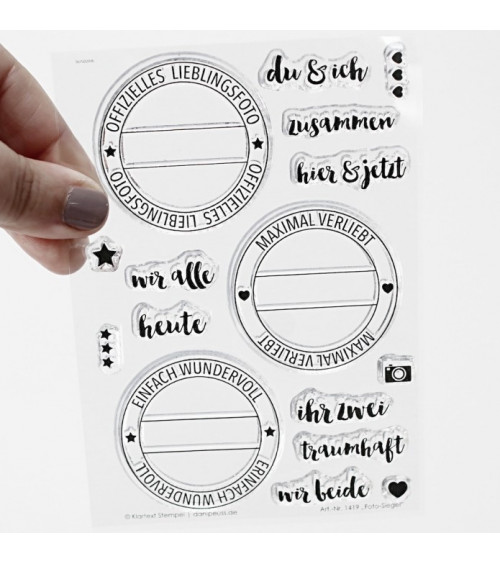 OFFIZIELLES LIEBLINGSFOTO
OFFIZIELLES LIEBLINGSFOTO
du & ich
zusammen
hier & jetzt
MAXIMAL VERLIEBT
MAXIMAL VERLIEBT
wir alle
heute
EINFACH WUNDERVOLL
EINFACH WUNDERVOLL
ihr zwei
traumhaft
wir beide
© Klartext Stempel | dampeuss.de
Art.-Nr. 1419 „Foto-Siegel“